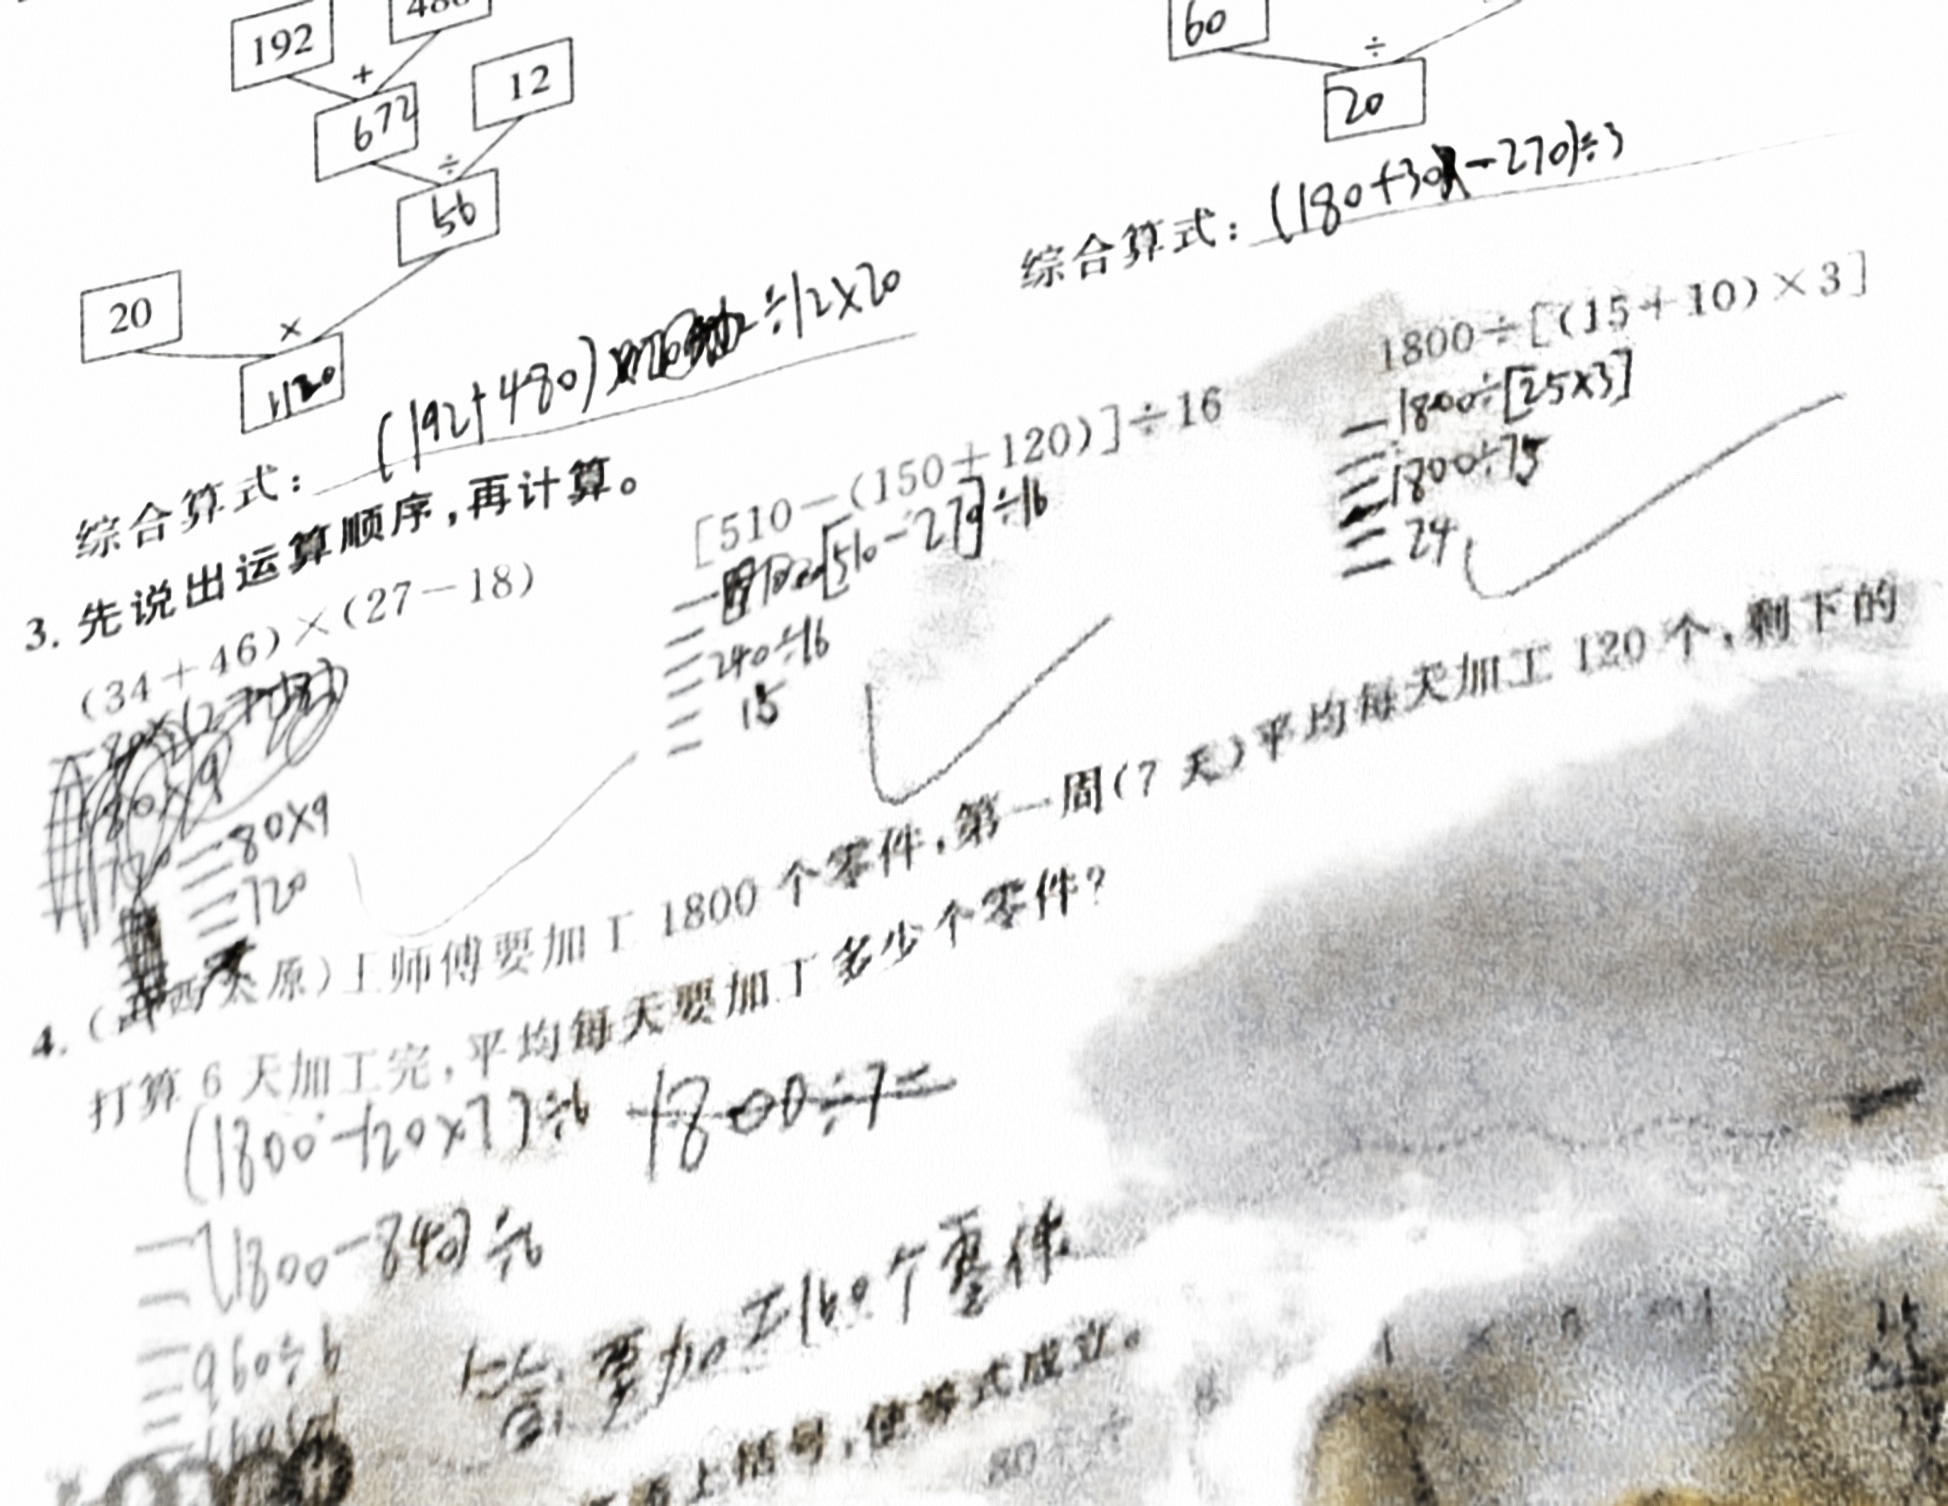 192
+
672
12
÷
56
20
×
1120
60
÷
20
综合算式：(180+30-270)÷3
综合算式：(192+480)÷12×20
3. 先说出运算顺序，再计算。
(34+46)×(27-18)
=80×9
=720
[510-(150+120)]÷16
=[510-270]÷16
=240÷16
=15
1800÷[(15+10)×3]
=1800÷[25×3]
=1800÷75
=24
4. (西太原)王师傅要加工 1800 个零件，第一周(7 天)平均每天加工 120 个，剩下的
打算 6 天加工完，平均每天要加工多少个零件？
(1800-120×7)÷6 1800÷7=
=(1800-840)÷6
=960÷6
答：要加工160个零件
上括号，使等式成立。
80